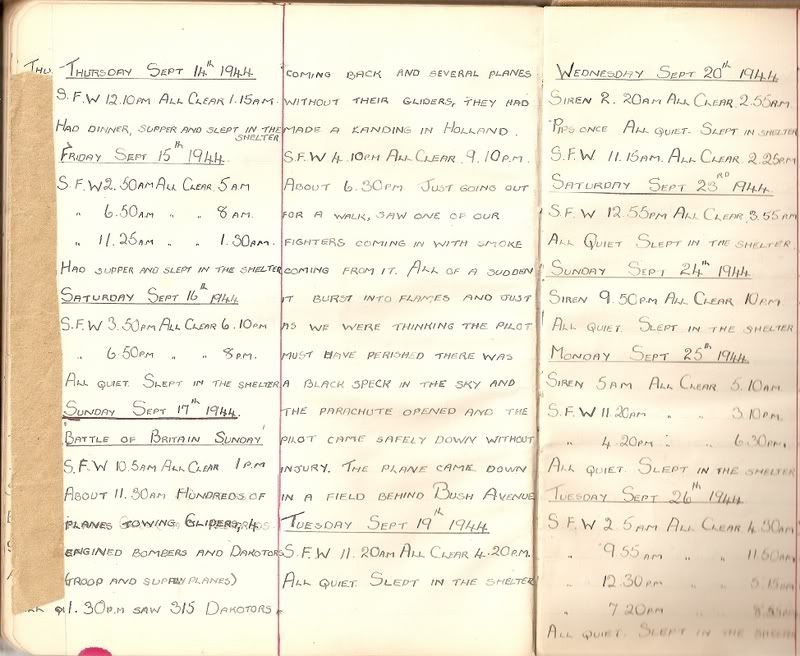 THU. THURSDAY SEPT 14th 1944
S.F.W 12.10PM ALL CLEAR 1.15AM.
HAD DINNER, SUPPER AND SLEPT IN THE SHELTER
FRIDAY SEPT 15th 1944.
S.F.W 2.50AM ALL CLEAR 5AM
" 6.50AM " " 8AM.
" 11.25AM " " 1.30AM.
HAD SUPPER AND SLEPT IN THE SHELTER
SATURDAY SEPT 16th 1944
S.F.W 3.50PM ALL CLEAR 6.10PM
" 6.50PM " " 8PM.
ALL QUIET. SLEPT IN THE SHELTER
SUNDAY SEPT 17th 1944.
'BATTLE OF BRITAIN SUNDAY'
S.F.W 10.5AM ALL CLEAR 1PM
ABOUT 11.30AM HUNDREDS OF
PLANES TOWING GLIDERS, 4
ENGINED BOMBERS AND DAKOTORS
(TROOP AND SUPPLY PLANES)
1.30P.M SAW 315 DAKOTORS
COMING BACK AND SEVERAL PLANES
WITHOUT THEIR GLIDERS, THEY HAD
MADE A LANDING IN HOLLAND.
S.F.W 4.10PM ALL CLEAR 9.10P.M.
ABOUT 6.30PM JUST GOING OUT
FOR A WALK, SAW ONE OF OUR
FIGHTERS COMING IN WITH SMOKE
COMING FROM IT. ALL OF A SUDDEN
IT BURST INTO FLAMES AND JUST
AS WE WERE THINKING THE PILOT
MUST HAVE PERISHED THERE WAS
A BLACK SPECK IN THE SKY AND
THE PARACHUTE OPENED AND THE
PILOT CAME SAFELY DOWN WITHOUT
INJURY. THE PLANE CAME DOWN
IN A FIELD BEHIND BUSH AVENUE
TUESDAY SEPT 19th 1944
S.F.W 11.20AM ALL CLEAR 4.20PM.
ALL QUIET. SLEPT IN THE SHELTER
WEDNESDAY SEPT 20th 1944
SIREN 2.20AM ALL CLEAR 2.55AM.
PIPS ONCE ALL QUIET. SLEPT IN SHELTER
S.F.W 11.15AM ALL CLEAR 2.25PM
SATURDAY SEPT 23RD 1944.
S.F.W 12.55PM ALL CLEAR 3.55AM
ALL QUIET SLEPT IN THE SHELTER.
SUNDAY SEPT 24th 1944
SIREN 9.50PM ALL CLEAR 10PM.
ALL QUIET. SLEPT IN THE SHELTER
MONDAY SEPT 25th 1944
SIREN 5AM ALL CLEAR 5.10AM.
S.F.W 11.20AM " " 3.10PM.
" 4.20PM " " 6.30PM.
ALL QUIET. SLEPT IN THE SHELTER
TUESDAY SEPT 26th 1944
S.F.W 2.5AM ALL CLEAR 4.30AM
" 9.55AM " " 11.50AM
" 12.30PM " " 5.15PM
" 7.20PM " "
ALL QUIET. SLEPT IN THE SHELTER